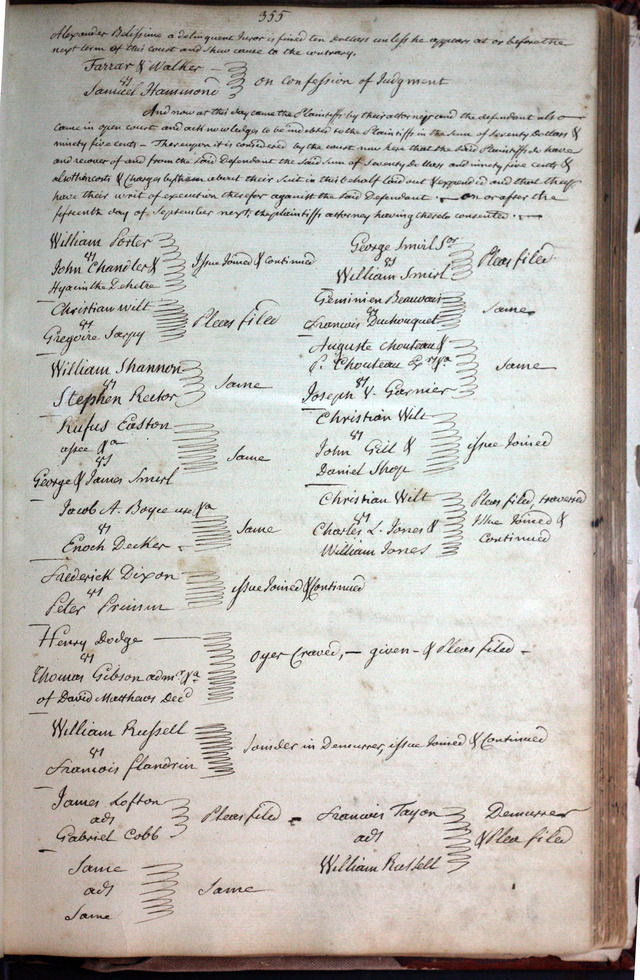 355
Alexander Belissime a delinquent Juror is fined ten Dollars unless he appears at or before the
next term of this court and shew cause to the contrary.
Farrar & Walker
vs
Samuel Hammond
on Confession of Judgment
And now at this day came the Plaintiffs by their attorneys and the defendant also
came in open court and acknowledges to be indebted to the Plaintiffs in the sum of Seventy Dollars &
ninety five cents - Thereupon it is considered by the court now here that the said Plaintiffs do have
and recover of and from the said defendant the said Sum of Seventy Dollars and ninety five cents &
also their costs & Charges by them about their Suit in this behalf laid out & expended and that they
have their writ of execution therefor against the said Defendant on or after the
fifteenth day of September next, the plaintiffs attorney having thereto consented.
William Porter
vs
John Chandler &
Hyacinthe
Issue Joined & Continued
Christian Wilt
vs
Gregoire Sarpy
Pleas filed
William Shannon
vs
Stephen Rector
Same
Rufus Easton
assee &a
vs
George & James Smirl
Same
Jacob A. Boyce use &a
vs
Enoch Decker
Same
Frederick Dixon
vs
Peter Primm
issue Joined & Continued
Henry Dodge
vs
Thomas Gibson admr &a
of David Matthews Decd
Oyer Craved, - given - & Pleas filed -
William Russell
vs
Francois Flandrin
Joinder in Demurrer, issue Joined & Continued
James Lofton
ads
Gabriel Cobb
Pleas filed
Same
ads
Same
Same
George Smirl Sor
vs
William Smirl
Pleas filed
Geminien Beauvais
vs
Francois Duchouquet
Same
Auguste Chouteau &
P. Chouteau Exrs &a
vs
Joseph V. Garnier
Same
Christian Wilt
vs
John Gill &
Daniel Shop
issue Joined
Christian Wilt
vs
Charles L. Jones &
William Jones
Pleas filed, traversed
Issue Joined &
Continued
Francois Tayon
ads
William Russell
Demurrer
& Plea filed